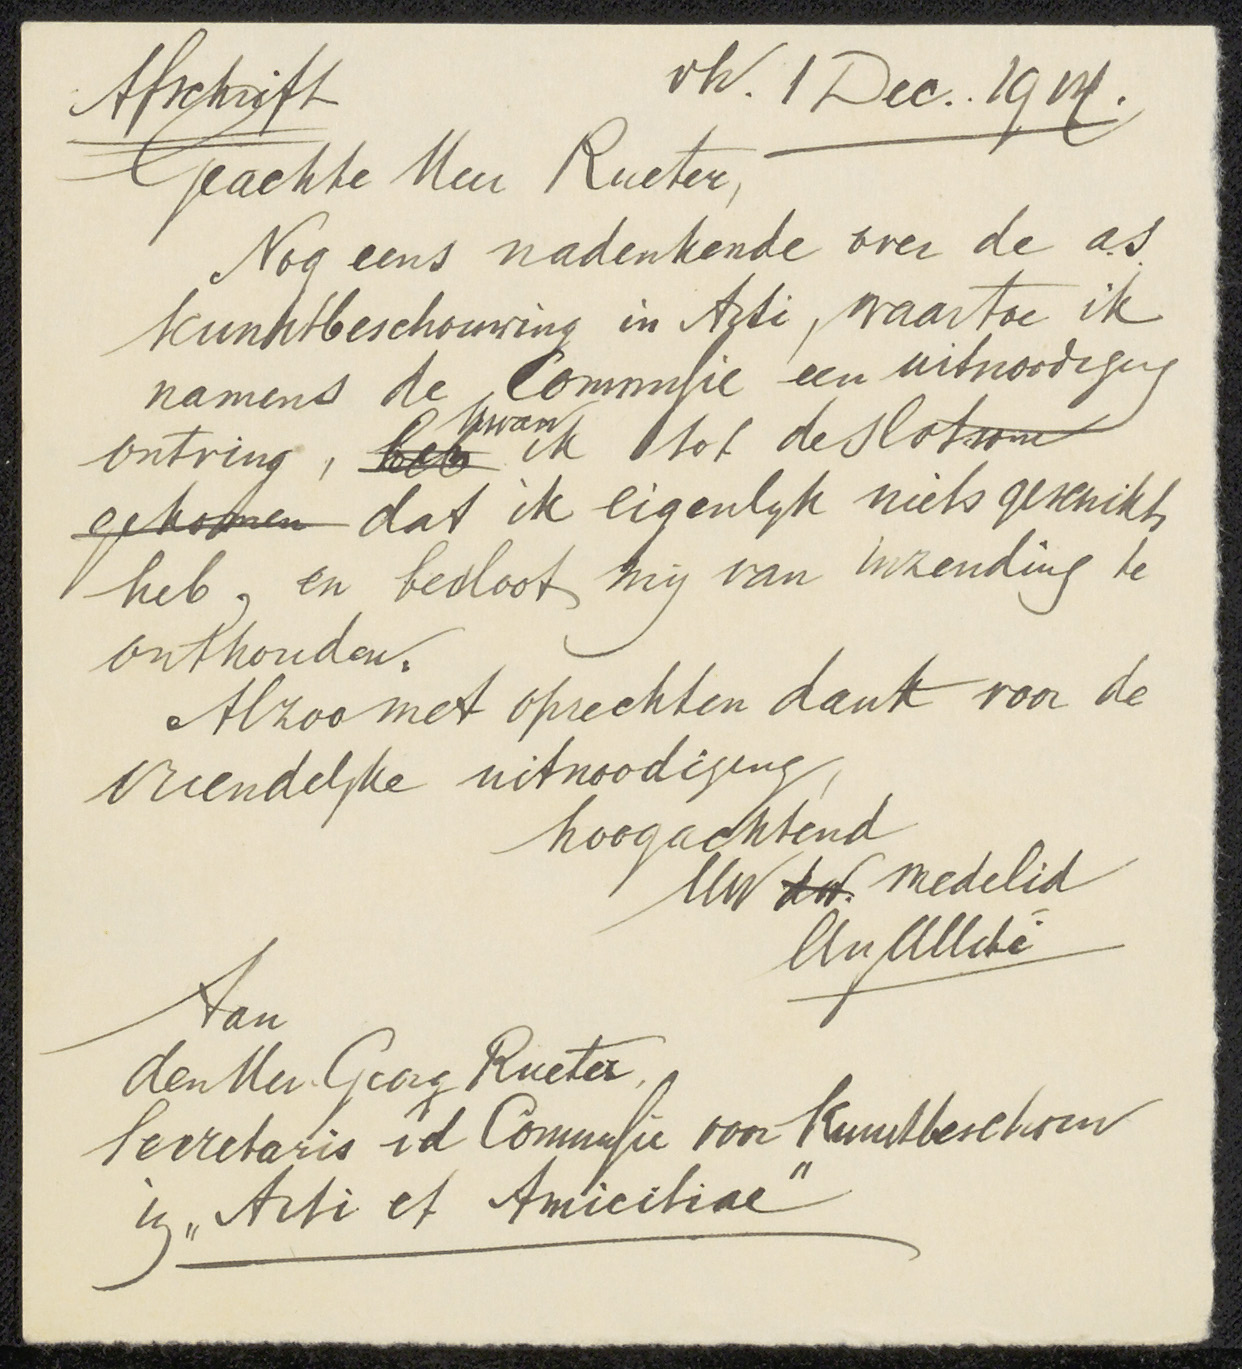 Afschrift
1 Dec. 19
Geachte Heer Rueter,
Nog eens nadenkende over de a.s.
kunstbeschouwing in Arti, waartoe ik
namens de Commissie een uitnoodiging
ontving, heb kwam ik tot de slotsom
gekomen dat ik eigenlyk niets geschikts
heb, en besloot my van inzending te
onthouden.
Alzoo met oprechten dank voor de
vriendelyke uitnoodiging,
hoogachtend
Uw dw. medelid
Aug Allebé
Aan
den Heer Georg Rueter,
Secretaris id Commissie voor Kunstbeschouw
ig „Arti et Amicitiae"